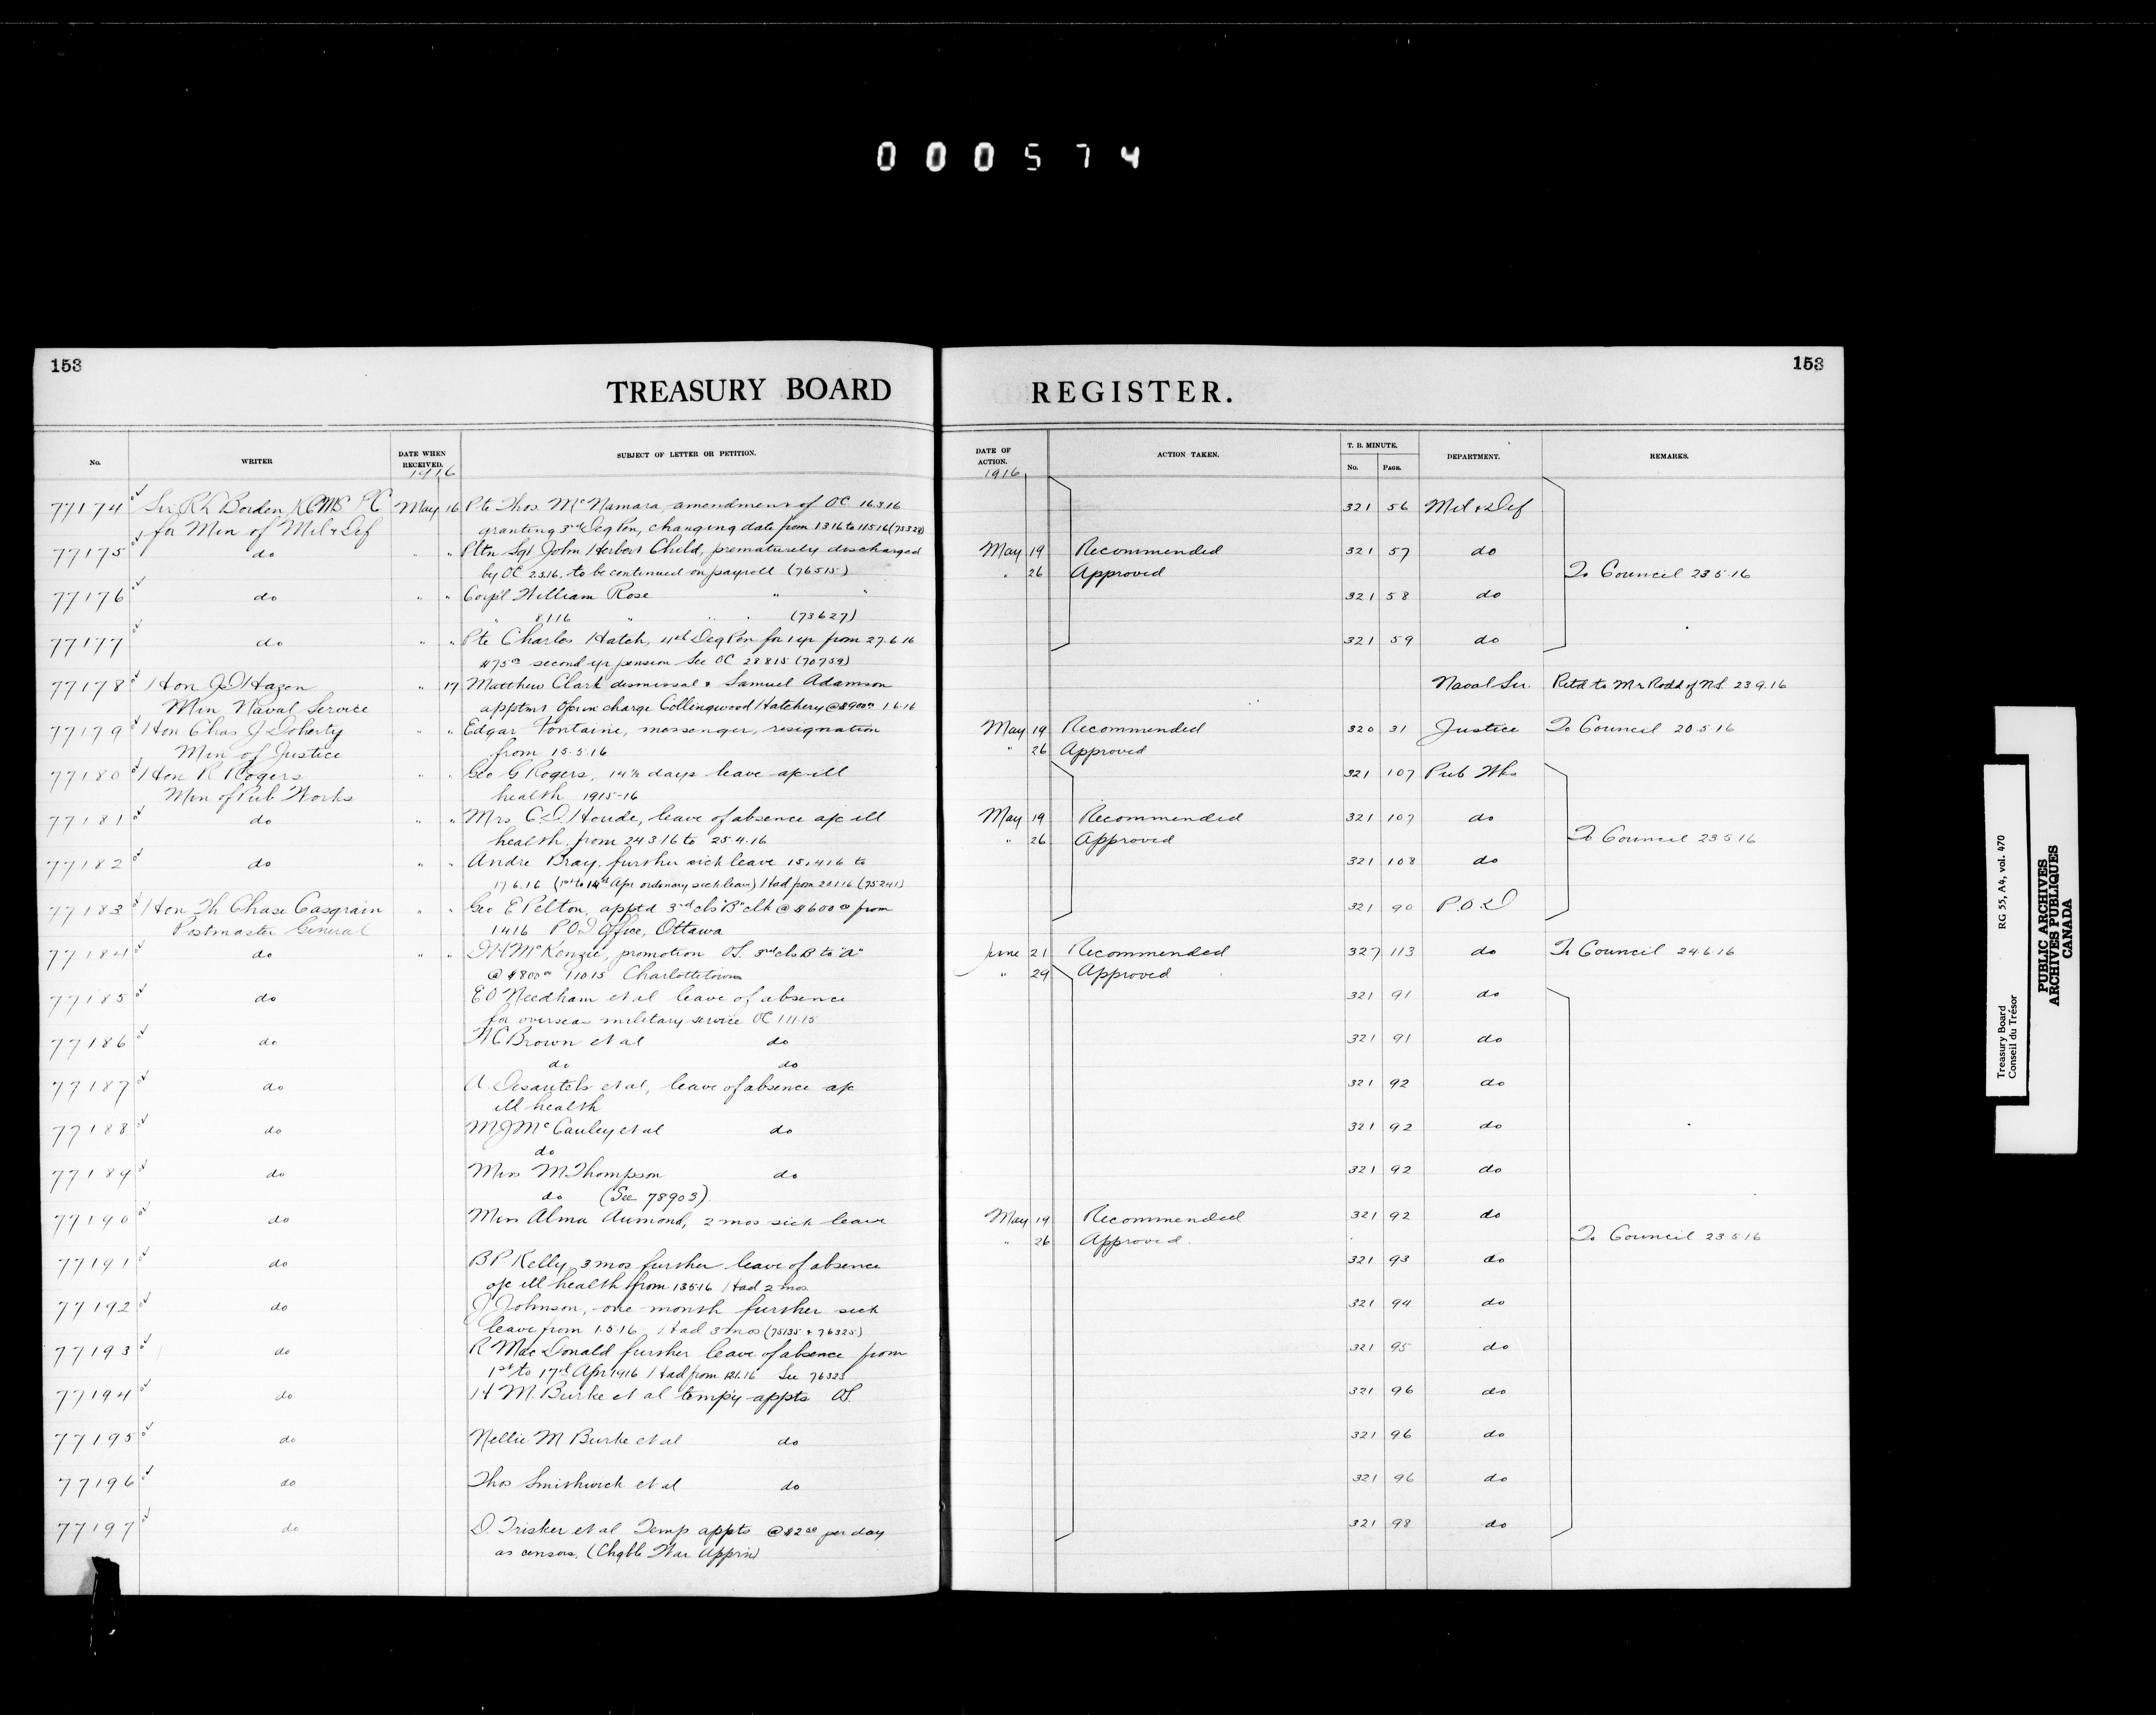 000574
153
TREASURY BOARD
No.
WRITER
DATE WHEN RECEIVED.
SUBJECT OF LETTER OR PETITION.
1916
77174 Sir R L Borden KCMG PC May 16 Pte Thos. McNamara, amendment of OC 16.3.16
for Min of Mil & Def granting 3rd Deg Pen, changing date from 1 3 16 to 11 5 16 (75328)
77175 do " " Pltn Sgt John Herbert Child, prematurely discharged
by OC 2.3.16. to be continued on payroll (76515)
77176 do " " Corp'l William Rose " "
" 8 1 16 " " " (73627)
77177 do " " Pte Charles Hatch, 4th Deg Pen for 1 yr from 27.6.16
$75.00 second yr pension See OC 28 8 15 (70759)
77178 Hon J D Hazen " 17 Matthew Clark dismissal & Samuel Adamson
Min Naval Service apptmt Ofcr in charge Collingwood Hatchery @ $900.00 1.6.16
77179 Hon Chas J Doherty " " Edgar Fontaine, messenger, resignation
Min of Justice from 15.5.16
77180 Hon R Rogers " " Geo G Rogers, 14½ days leave a/c ill
Min of Pub Works health 1915-16
77181 do " " Mrs C.D. Houde, leave of absence a/c ill
health from 24 3.16 to 25.4.16
77182 do " " Andre Bray, further sick leave 15.4.16 to
17 6.16 (1st to 14th Apr ordinary sick leave) Had from 20 1 16 (75241)
77183 Hon Th Chase Casgrain " " Geo E Pelton, apptd 3rd cls "B" clk @ $600.00 from
Postmaster General 1 4 16 P O D Office, Ottawa
77184 do " " McKenzie, promotion OS. 3rd cls B to "A"
@ $800.00 1 10 15 Charlottetown
77185 do E O Needham et al leave of absence
for overseas military service OC 1 11.15
77186 do Brown et al do
do do
77187 do A. Desautels et al, leave of absence a/c
ill health
77188 do M J McCauley et al do
do
77189 do Miss M Thompson do
do (See 78903)
77190 do Miss Alma Aumond, 2 mos sick leave
77191 do B P Kelly 3 mos further leave of absence
a/c ill health from 13 5 16 Had 2 mos
77192 do J Johnson, one month further sick
leave from 1.5.16 Had 3 mos (75135 & 76325)
77193 do R MacDonald further leave of absence from
1st to 17th Apr 1916 Had from See 76323
77194 do H M. Burke et al temp'y appts OS.
77195 do Nellie M Burke et al do
77196 do Thos Smithwick et al do
77197 do D. Trisker et al Temp appts @ $2.50 per day
as censors, (Chgble War Apprn)
153
REGISTER.
DATE OF ACTION.
ACTION TAKEN.
T. B. MINUTE.
No.
PAGE.
DEPARTMENT.
REMARKS.
1916
321 56 Mil & Def
May 19 Recommended 321 57 do
" 26 Approved To Council 23 5 16
321 58 do
321 59 do
Naval Ser. Retd to Mr Rodd of N.S. 23 9.16
May 19 Recommended 320 31 Justice To Council 20 5 16
" 26 Approved
321 107 Pub Wks
May 19 Recommended 321 107 do
" 26 Approved To Council 23 5 16
321 108 do
321 90 P.O.D
June 21 Recommended 327 113 do To Council 24 6 16
" 29 Approved
321 91 do
321 91 do
321 92 do
321 92 do
321 92 do
May 19 Recommended 321 92 do
" 26 Approved. To Council 23 5 16
321 93 do
321 94 do
321 95 do
321 96 do
321 96 do
321 96 do
321 98 do
Treasury Board RG 55, A4, vol. 470
Conseil du Trésor
PUBLIC ARCHIVES
ARCHIVES PUBLIQUES
CANADA